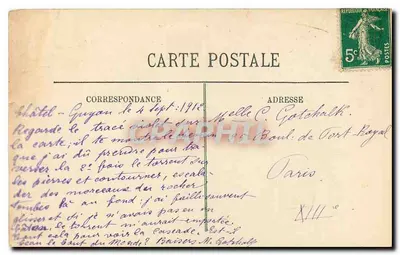 CARTE POSTALE
CORRESPONDANCE
ADRESSE
5c
POSTES
Châtel-Guyon le 4 Sept: 1912
Regarde le tracé violet sur
la carte; il te
que j'ai dû prendre pour tra
verser la 2e fois le torrent sur
les pierres et contourner, escala
der des morceaux des rocher
tombés là au fond: j'ai failli souvent
glisser et si je n'avais pas eu
le torrent m'aurait emportée
tout cela pour voir la cascade. Est-il
beau le bout du Monde? Baisers M. Gotchalk
Melle C. Gotchalk
Boul. de Port-Royal
Paris
XIIIe
CPARTHAGE